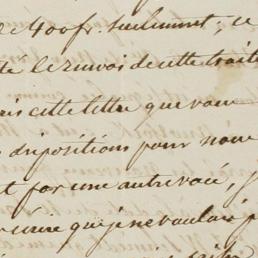 de 400 fr. seulement ; ce
te le renvoi de cette traite
cette lettre que vous
dispositions pour nous
t par une autre voie, j
écrire que je ne voulais p